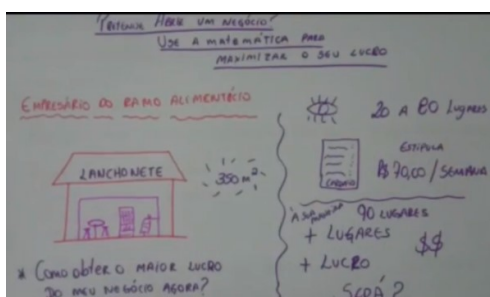 PRETENDE ABRIR UM NEGÓCIO?
USE A MATEMÁTICA PARA
MAXIMIZAR O SEU LUCRO
EMPRESÁRIO DO RAMO ALIMENTÍCIO
LANCHONETE
350 m²
* COMO OBTER O MAIOR LUCRO
DO MEU NEGÓCIO AGORA?
20 A 80 LUGARES
CARDÁPIO
ESTIPULA
R$ 70,00 / SEMANA
90 LUGARES
+ LUGARES
+ LUCRO
$$
SERÁ?